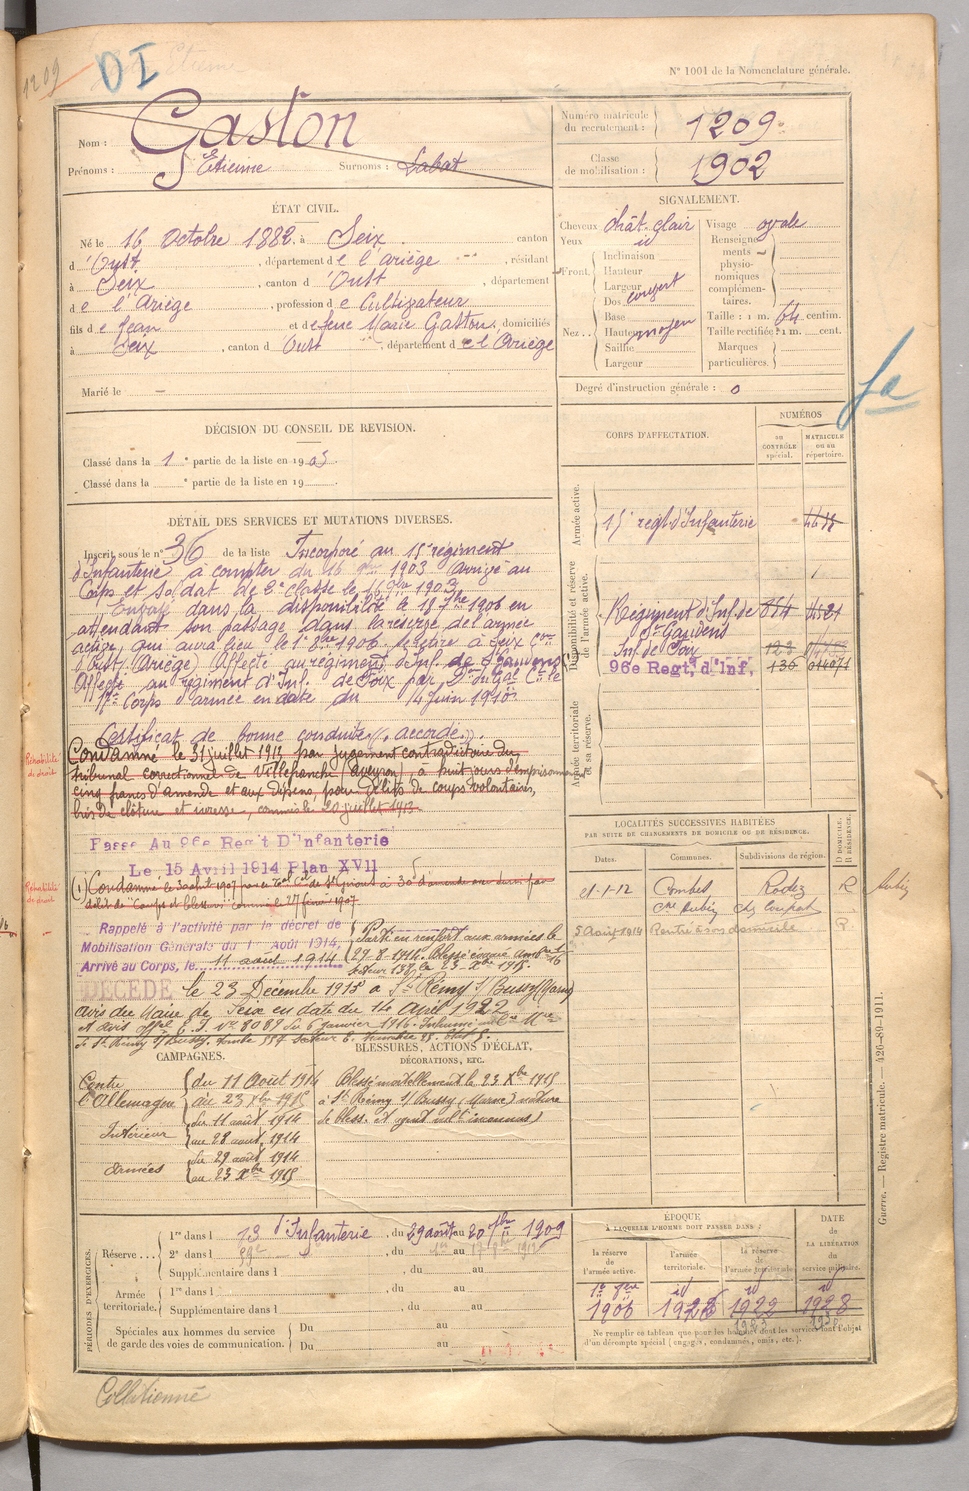 1209
DI
N° 1001 de la Nomenclature générale.
Nom : Gaston
Prénoms : Etienne Surnoms : Labat
Numéro matricule du recrutement : 1209
Classe de mobilisation : 1902
ÉTAT CIVIL.
Né le 16 Octobre 1882, à Seix canton
d'Oust, département de l'Ariège, résidant
à Seix, canton d'Oust, département
de l'Ariège, profession de Cultivateur
fils de Jean et de feue Marie Gaston, domiciliés
à Seix, canton d'Oust, département de l'Ariège
Marié le -
SIGNALEMENT.
Cheveux chât. clair
Yeux id
Front Inclinaison
Hauteur
Largeur
Nez Dos
Base
Hauteur moyen
Saillie
Largeur
Visage ovale
Renseignements physionomiques complémentaires.
Taille : 1 m. 64 centim.
Taille rectifiée : 1 m. cent.
Marques particulières.
Degré d'instruction générale : 0
fa
DÉCISION DU CONSEIL DE REVISION.
Classé dans la 1e partie de la liste en 1903.
Classé dans la e partie de la liste en 19
DÉTAIL DES SERVICES ET MUTATIONS DIVERSES.
Inscrit sous le n° 36 de la liste Incorporé au 15e régiment
d'Infanterie à compter du 16 9bre 1903 Arrivé au
Corps et soldat de 2e classe le 16 9bre 1903
dans la disponibilité le 18 7bre 1906 en
attendant son passage dans la réserve de l'armée
active, qui aura lieu le 1er 8bre 1906. Se retire à Seix
d'Oust (Ariège) Affecté au régiment d'Inf. de St Gaudens
Affecté au régiment d'Inf. de Foix par
17e Corps d'armée en date du 14 Juin 1910
Certificat de bonne conduite "accordé".
Condamné le 31 juillet 1913 par jugement contradictoire du
tribunal correctionnel de Villefranche (Aveyron), à huit jours d'emprisonnement
cinq francs d'amende et aux dépens, pour délits de coups volontaires,
bris de clôture et ivresse, commis le 20 juillet 1913
Réhabilité de droit
Passé Au 96e Regt D'Infanterie
Le 15 Avril 1914 Plan XVII
(1) Condamné le 3 août 1907 par le
délit de "Coups et blessures" commis le 27 1907
Réhabilité de droit
Rappelé à l'activité par le décret de
Mobilisation Générale du 1 Août 1914,
Arrivé au Corps, le 11 août 1914
Parti en renfort aux armées le
29-8-1914. Blessé évacué
secteur 138, le 23 Xbre 1915.
DÉCÉDÉ le 23 Décembre 1915 à St Rémy s/ Bussy (Marne)
avis du Maire de Seix en date du 14 Avril 1922
et avis offel du 6 janvier 1916. Inhumé
à St Rémy s/ Bussy, tombe
CORPS D'AFFECTATION.
NUMÉROS
au CONTRÔLE spécial.
MATRICULE ou au répertoire.
Armée active.
15e régt d'Infanterie
Disponibilité et réserve de l'armée active.
Régiment d'Inf. de St Gaudens
Inf. de Foix 123
96e Regt, d'Inf, 136
Armée territoriale et sa réserve.
LOCALITÉS SUCCESSIVES HABITÉES
PAR SUITE DE CHANGEMENTS DE DOMICILE OU DE RÉSIDENCE.
Dates. Communes. Subdivisions de région. D DOMICILE. R RÉSIDENCE.
21-1-12 Combes Rodez R Aubin
cne Aubin
5 Août 1914 Rentré à son domicile R
CAMPAGNES.
Contre l'Allemagne du 11 Août 1914
au 23 Xbre 1915
Intérieur du 11 août 1914
au 28 août 1914
Armées du 29 août 1914
au 23 Xbre 1915
BLESSURES, ACTIONS D'ÉCLAT,
DÉCORATIONS, ETC.
Blessé mortellement le 23 Xbre 1915
à St Rémy s/ Bussy (Marne) nature
de bless. et agent vul. inconnus)
PÉRIODES D'EXERCICES.
Réserve 1re dans l 13 d'Infanterie, du 29 août au 20 7bre 1909
2e dans l , du au 1912
Supplémentaire dans l , du au
Armée territoriale. 1re dans l , du au
Supplémentaire dans l , du au
Spéciales aux hommes du service de garde des voies de communication. Du au
Du au
ÉPOQUE
À LAQUELLE L'HOMME DOIT PASSER DANS :
la réserve de l'armée active. l'armée territoriale. la réserve de l'armée territoriale.
DATE de LA LIBÉRATION du service militaire.
1er 8bre id id id
1906 1922 1928
1923
Ne remplir ce tableau que pour les hommes dont les services font l'objet
d'un décompte spécial (engagés, condamnés, omis, etc.).
Guerre. — Registre matricule. — 426-89-1911.
Collationné